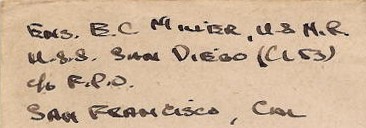 Ens. E.C. Miller, U.S.N.R.
U.S.S. San Diego (CL53)
c/o F.P.O.
San Francisco, Cal